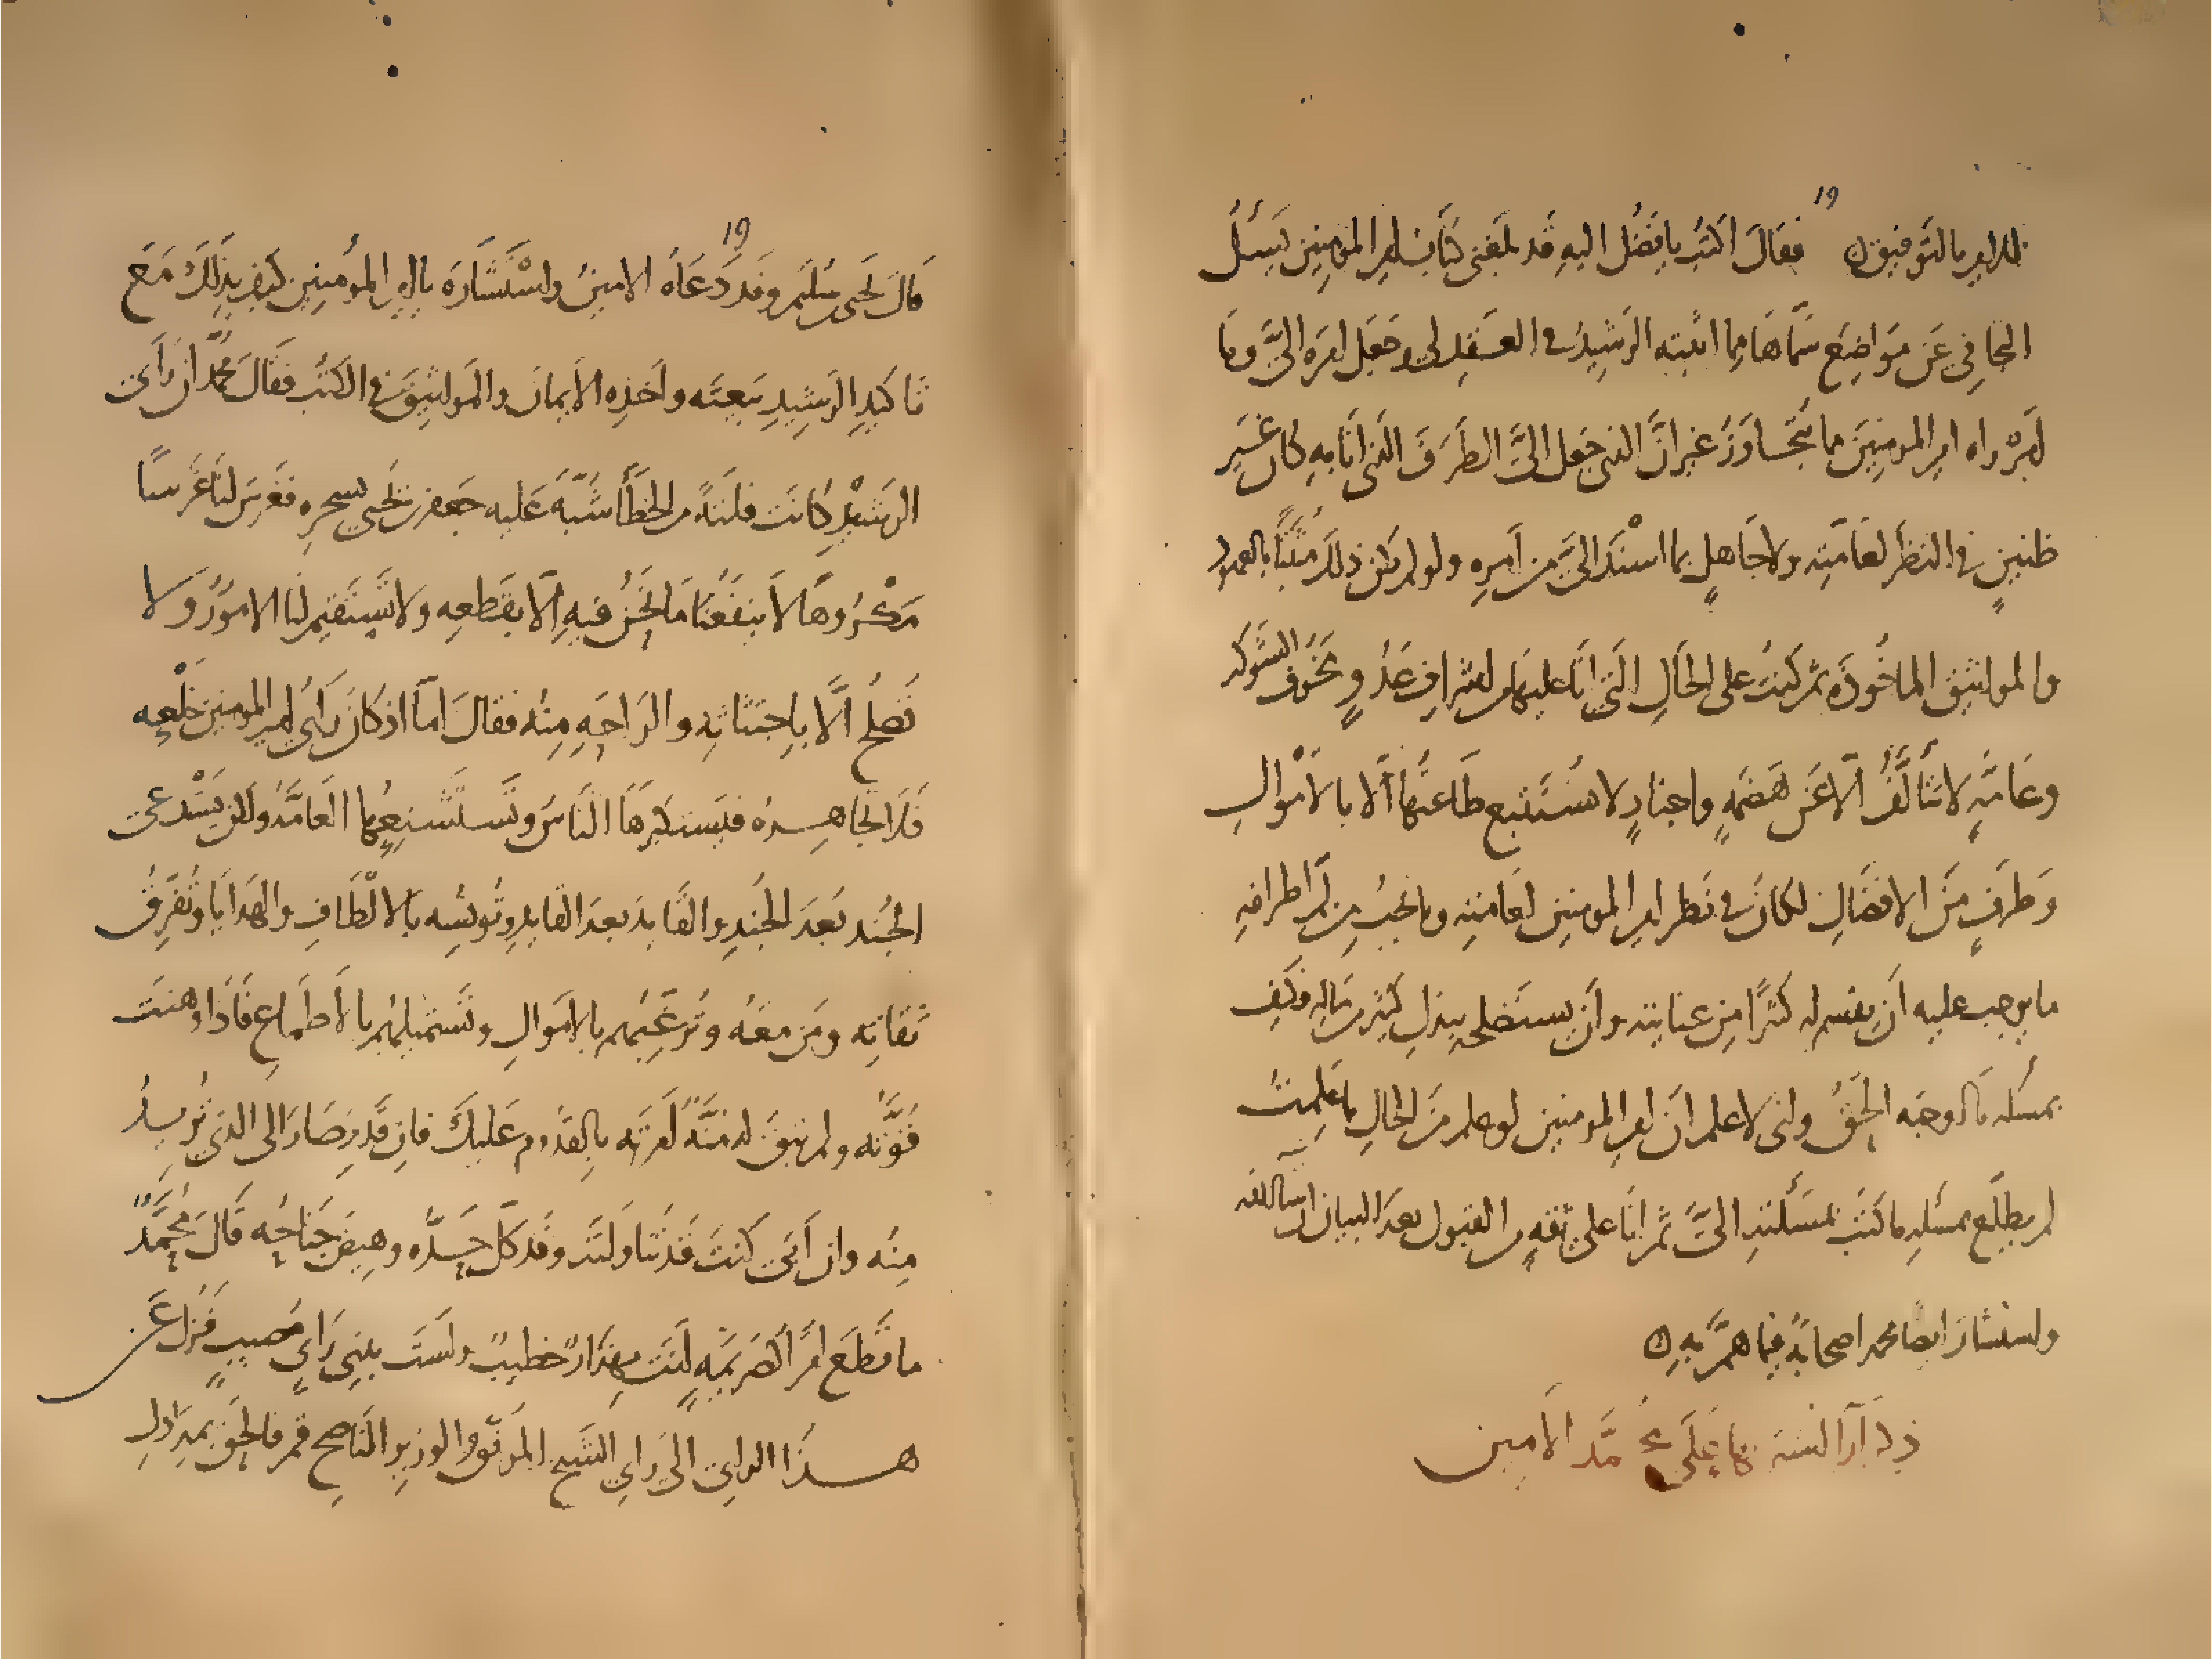 للامير بالتوفيق ٥ فقالَ اكتب يا فَضْل اليه قَد بلغَنى كتابُ امير المؤمِنِين يَسَلُ
التجافي عَن مَوَاضِع سمَّاهَا مِما اثبته الرَشِيدُ في العَقدِ لى وجَعَل امرَه الىَّ وما
امرٌ راه امير المومنِينَ مما يُتجَاوَزُ غير انّ الذى جَعَل الىَّ الطَرَفَ الذى انَا بهِ كان غَير
ظنينٍ في النظَر لعَامّتِه ولا جَاهلٍ بما اسْنَد الىَّ من اَمرِه ولو لم يكن ذلك مثبتًا بالعهود
والمواثيق الماخُوذَه ثم كنتُ على الحَالِ التى انَا عليهَا من اشرافِ عَدُوٍ مَخُوفِ الشوكه
وعَامّةٍ لا تتَألَّفُ الّا عَن هَضمَهٍ واجنادٍ لا تُستَتبَع طَاعتُها الّا بالاَموالِ
وَطَرفٍ منَ الافضَالِ لكانَ في نَظر امير المومنين لعَامتِه وما يُحب من لمّ اطرافِه
ما يوجب عليه اَن يقسم له كثيرًا مِن عنايته وأن يستَصْلحه ببذلِ كثيرٍ من مَالِه فكَيف
بمسئله ما اوجبَه الحَقُّ وانى لاعلم انّ امير المومنين لو علم منَ الحالِ ما عَلِمتُ
لم يطلّع بمسئلهِ ما كتبَ بمسَئلته الىَّ ثم انَا على ثقهٍ من القبول بعدَ البيان ان شا الله
واستشارَ ايضًا محمد اصحابَهُ فيما همَّ بهِ ٥
ذِكر آرآ السته بها عَلَى مُحَمَّد الاَمين
قالَ يَحيى بن سُلَيم وقَد دَعَاهُ الامينُ واسْتَشَارَه يا امير المؤمِنِين كَيفَ بذلِكَ مَعَ
تاكيدِ الرَشِيدِ بَيعتَه واَخذِه الأيمانَ والمَواثيقَ في الكتب فقَالَ مُحمّد ان رَأىَ
الرشيدِ كانَت فلتَةً من الخَطَأ شَبَّهَ عَليه جَعفر بن يَحيى بسحرِه فغَرسَ لنَا غَرسًا
مَكْرُوهًا لاَ ينفَعُنَا مَا نَحنُ فيهِ اِلّا بقَطعِه ولا تَستَقيم لنا الامُورُ وَلا
تَصلُح الّا باِجتثاثِه والرَاحَهِ مِنه فقالَ امّآ اذ كانَ رَأيُ امير المومنين خَلْعه
فلَا تجاهِره فيَستنكرهَا النَاسُ وتَستَشنِعُها العَامَّةُ ولَكن يَستَدعى
الجُند بَعدَ الجُندِ والقَايدَ بعدَ القَايدِ وتُونسُه بالالْطَافِ والهَدَايا وتُفرِّق
ثقاتِه ومَن معَهُ وتُرغّبُهم بالاَموالِ وتَستَميلُهم بالأَطمَاعِ فَاذا اوهنتَ
قُوَّتَه ولم تبقَ له مُنَّةً اَمرتَه بِالقدُوم عَليكَ فاِن قَدِمَ صَارَ الى الذى تُريدُ
مِنُه وان اَبىَ كنتَ قَد تناولتَه وقَد كَلّ حَدُّه وهِيضَ جَنَاحُه قالَ مُحمَّدٌ
ما قطَعَ امرًا كصَريمَهٍ اَنتَ مِهذَارٌ خطِيبٌ ولَستَ بذِى رَايٍ مُصِيبٍ فَزُل عَن
هــذَا الراىِ الى رَاىِ الشَيخ المُوَفقِ والوَزيرِ النَاصِح قُم فالحَق بمِدَادِكَ